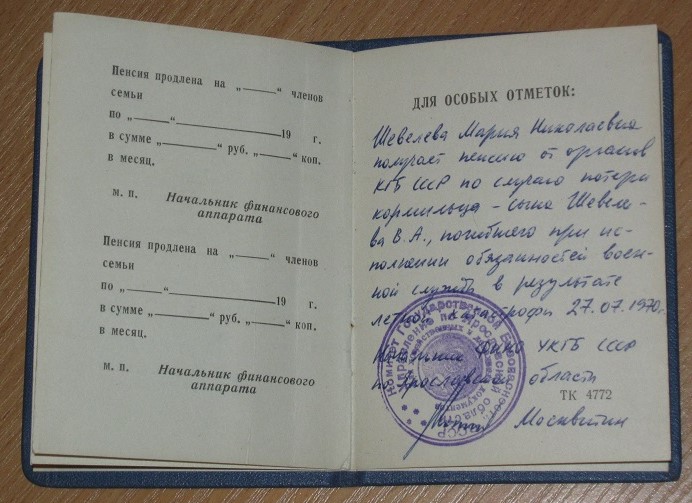 Пенсия продлена на „——“ членов
семьи
по „——“——————19 г.
в сумме „————“ руб. „——“ коп.
в месяц.
м. п. Начальник финансового
аппарата
Пенсия продлена на „——“ членов
семьи
по „——“——————19 г.
в сумме „————“ руб. „——“ коп.
в месяц.
м. п. Начальник финансового
аппарата
ДЛЯ ОСОБЫХ ОТМЕТОК:
Шевелева Мария Николаевна
получает пенсию от органов
КГБ СССР по случаю потери
кормильца – сына Шевеле-
ва В.А., погибшего при ис-
полнении обязанностей воен-
ной службы в результате
летной катастрофы 27.07.1970г.
Начальник ФИНО УКГБ СССР
по Ярославской области
ТК 4772
Москвитин
Комитет Государственной Безопасности
Управление по Ярославской области
документов
СССР